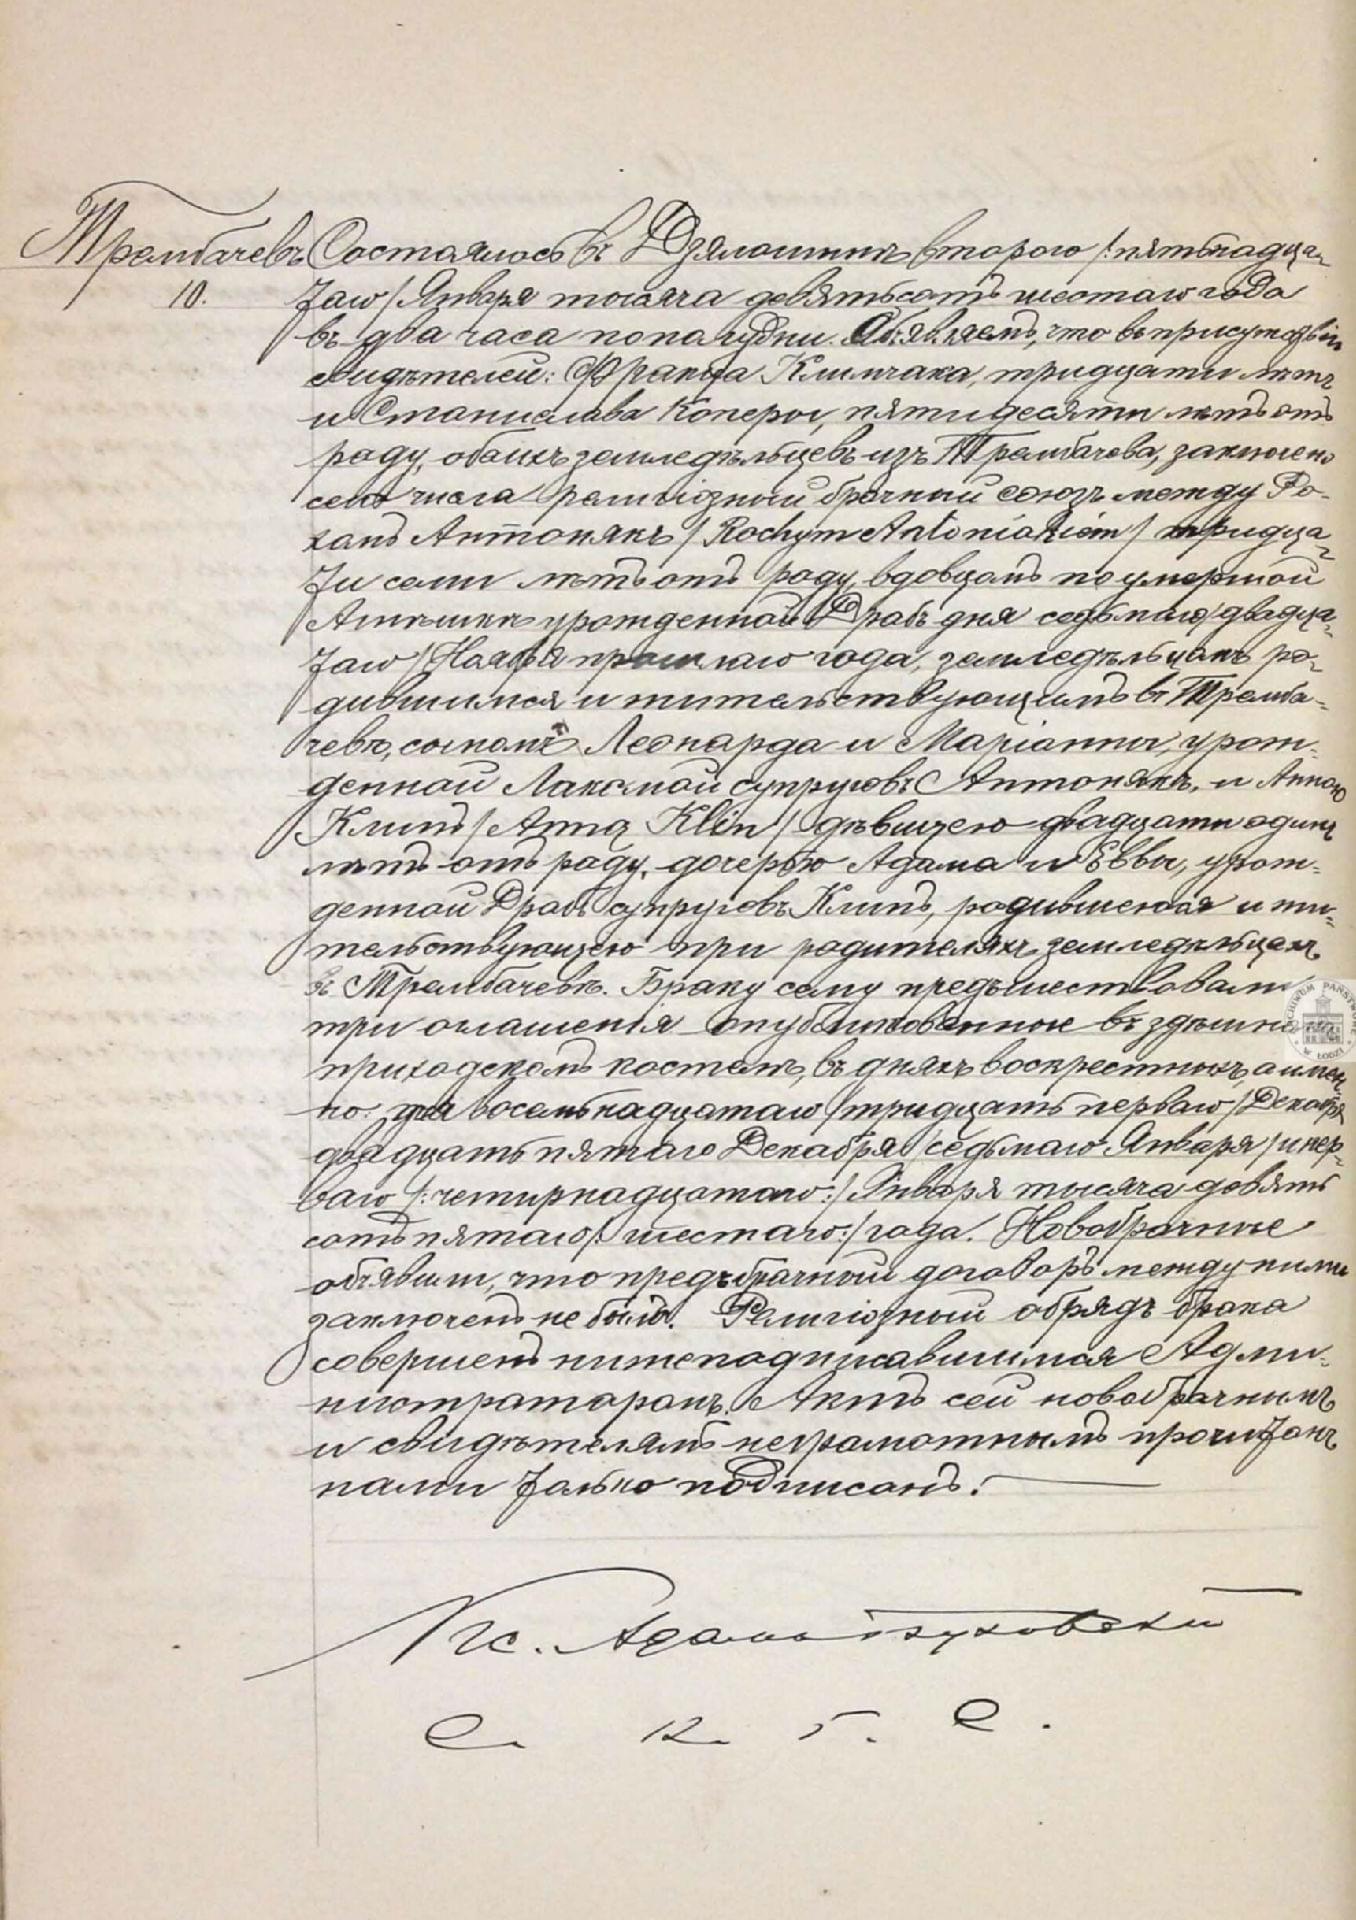 Трембачевъ Состоялось въ Дзялошинѣ второго /:пятьнадца-
10. таго/ Января тысяча девятьсотъ шестаго года
въ два часа пополудни. Объявляемъ, что въ присутствіи
свидѣтелей: Франца Климчака, тридцати лѣтъ
и Станислава Коперы, пятидесяти лѣтъ отъ
роду, обоихъ земледѣльцевъ изъ Трембачева, заключено
сего числа религіозный брачный союзъ между Ро-
хомъ Антонякъ /Rochym Antoniakiem/ тридца-
ти семи лѣтъ отъ роду, вдовцомъ по умершой
Агнѣшкѣ урожденной Драбъ дня седьмаго/двадца-
таго/ Ноября прошлаго года, земледѣльцомъ ро-
дившимся и жительствующимъ въ Тремба-
чевѣ, сыномъ Леонарда и Маріанны, урож-
денной Лакомой супруговъ Антонякъ, и Анною
Клинъ /Anną Klin/ дѣвицею двадцати одинъ
лѣтъ отъ роду, дочерью Адама и Еввы, урож-
денной Драбъ супруговъ Клинъ, родившеюся и жи-
тельствующею при родителяхъ земледѣльцахъ
въ Трембачевѣ. Браку сему предъшествовали
три оглашенія опубликованные въ здѣшнемъ
приходскомъ костелѣ, въ дняхъ воскресныхъ, а имен-
но: дня восемьнадцатаго /тридцать перваго/ Декабря
двадцать пятаго Декабря /седьмаго Января/ и пер-
ваго /:четырнадцатаго:/ Января тысяча девять
сотъ пятаго/: шестаго:/ года. Новобрачные
объявили, что предъбрачный договоръ между ними
заключенъ не былъ. Религіозный обрядъ брака
совершенъ нижеподписавшимся Адми-
нистраторомъ. Актъ сей новобрачнымъ
и свидѣтелямъ неграмотнымъ прочитанъ
нами только подписанъ.
Кс. Адамъ
С. К. Г. С.